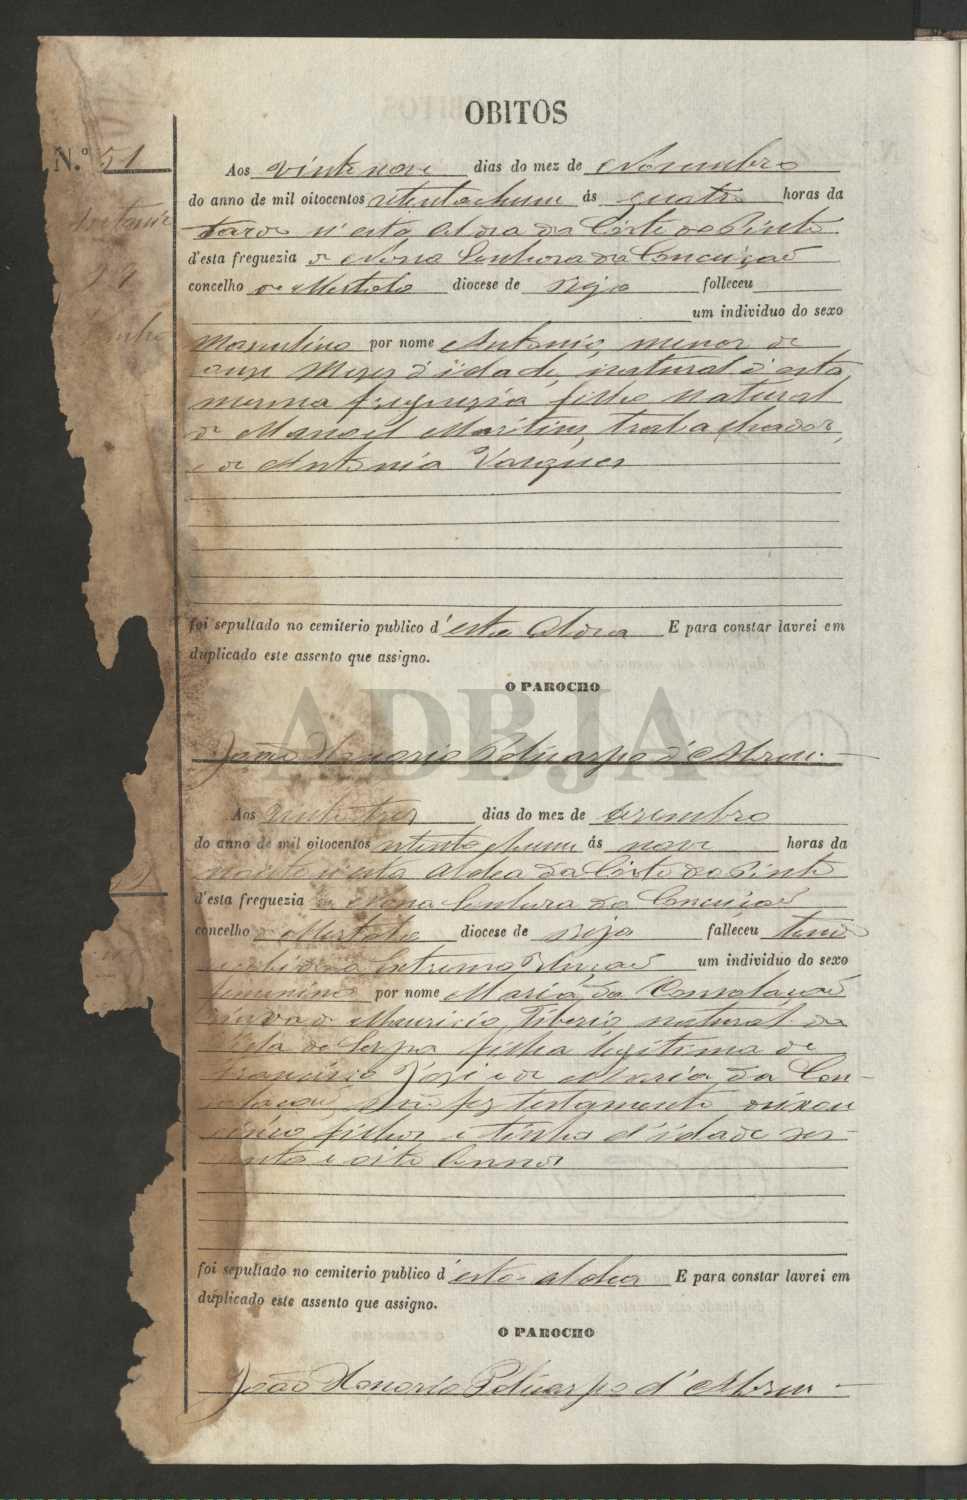 OBITOS
N.º 51
Aos vinte nove dias do mez de Novembro
do anno de mil oitocentos setenta e hum ás quatro horas da
tarde n'esta Aldea da Côrte do Pinto
d'esta freguezia de Nossa Senhora da Conceição
concelho de Mertola diocese de Beja falleceu
um individuo do sexo
Masculino por nome Antonio, menor de
onze Mezes d'idade, natural d'esta
mesma freguezia filho natural
de Manoel Martins, trabalhador,
e de Antonia Vasques
foi sepultado no cemiterio publico d'esta Aldea E para constar lavrei em
duplicado este assento que assigno.
O PAROCHO
ADBJA
João Honorio Policarpo d'Abreu
Aos vinte tres dias do mez de Dezembro
do anno de mil oitocentos setenta e hum ás nove horas da
noite n'esta Aldea da Côrte do Pinto
d'esta freguezia de Nossa Senhora da Conceição
concelho de Mertola diocese de Beja falleceu tendo
recebido a Extrema Unção um individuo do sexo
femenino por nome Maria da Consolação
viuva de Mauricio Tiberio natural da
Villa de Serpa filha legitima de
Francisco José e de Maria da Con-
solação, Não fez testamento deixou
cinco filhos e tinha d'idade ses-
senta e oito Annos
foi sepultado no cemiterio publico d'esta aldea E para constar lavrei em
duplicado este assento que assigno.
O PAROCHO
João Honorio Policarpo d'Abreu